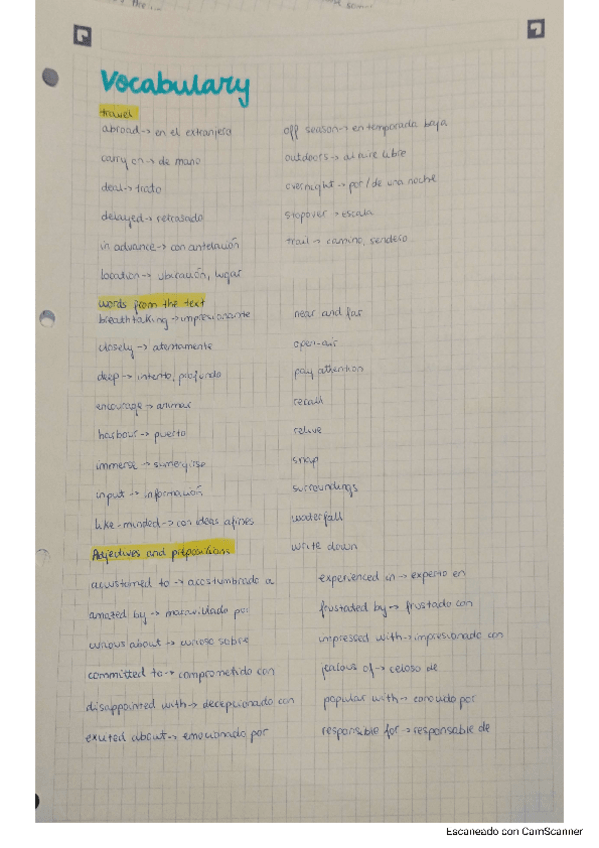 Vocabulary
travel
abroad → en el extranjero
carry on → de mano
deal → trato
delayed → retrasado
in advance → con antelación
location → ubicación, lugar
off season → en temporada baja
outdoors → al aire libre
overnight → por/de una noche
stopover → escala
trail → camino, sendero
words from the text
breathtaking → impresionante
closely → atentamente
deep → intento, profundo
encourage → animar
harbour → puerto
immerse → sumergirse
input → información
like-minded → con ideas afines
near and far
open-air
pay attention
recall
relive
snap
surroundings
waterfall
write down
Adjectives and prepositions
acustomed to → acostumbrado a
amazed by → maravillado por
curious about → curioso sobre
committed to → comprometido con
disappointed with → decepcionado con
excited about → emocionado por
experienced in → experto en
frustated by → frustado con
impressed with → impresionado con
jealous of → celoso de
popular with → conocido por
responsible for → responsable de
Escaneado con CamScanner